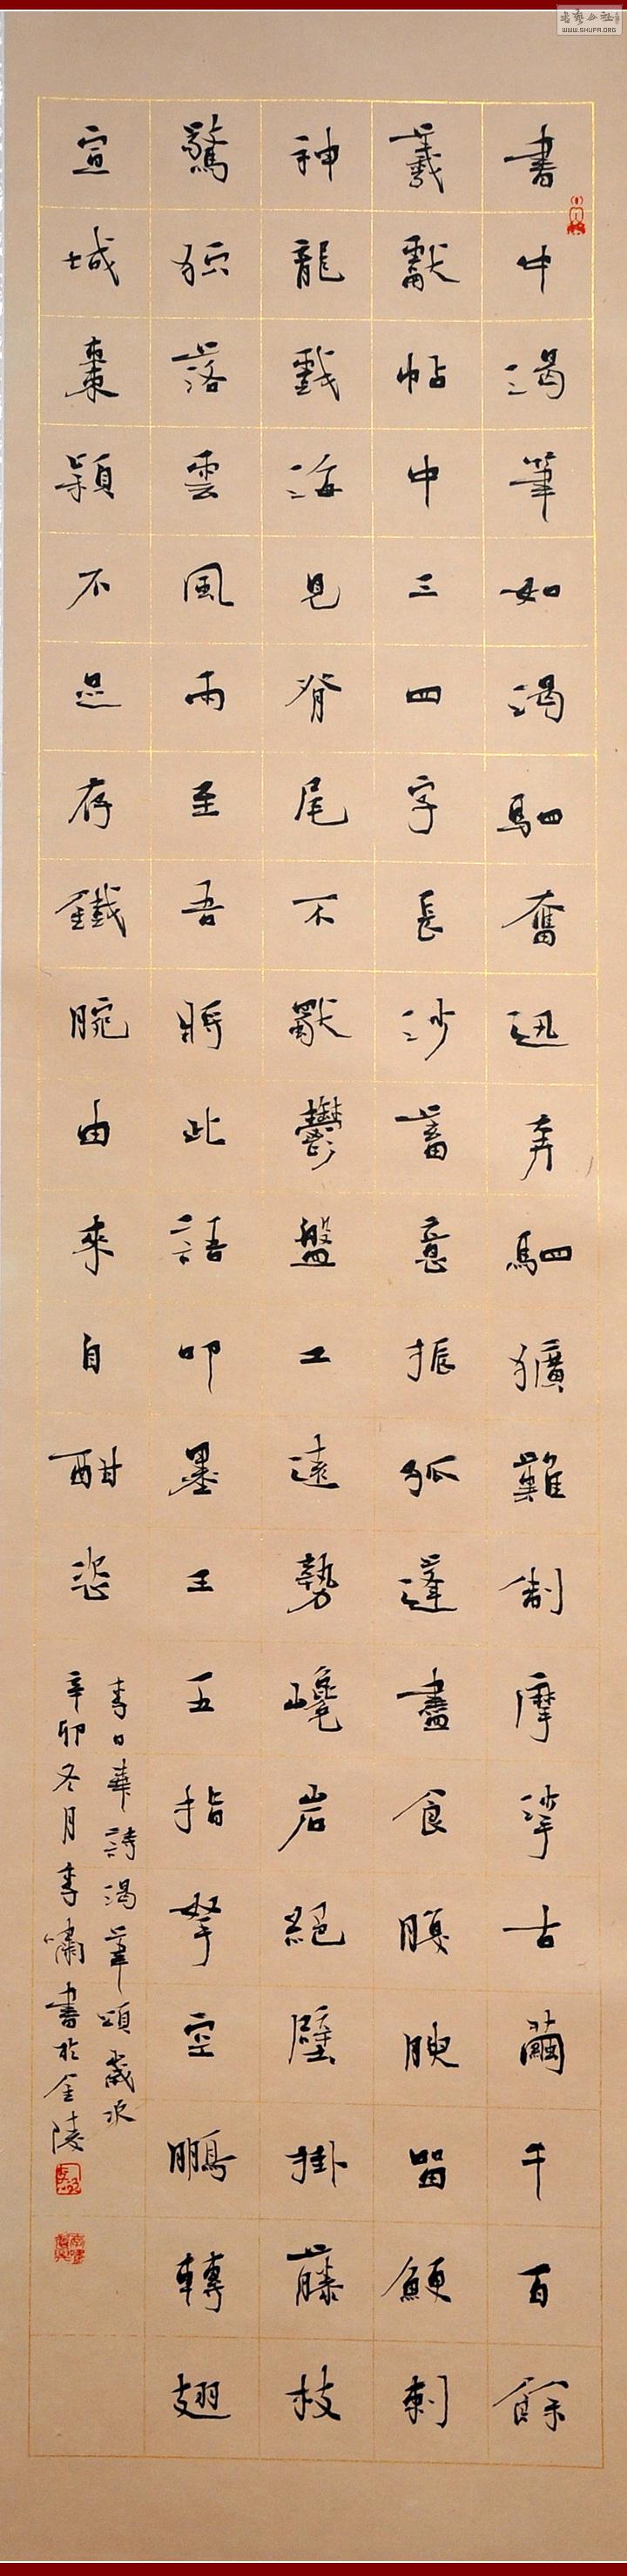 書中渴筆如渴駟奮迅奔駟獷難制摩挲古繭千百餘
羲獻帖中三四字長沙蓄意振孤蓬盡食腹腴留鯁刺
神龍戲海見脊尾不獸鬱盤工遠勢巉岩絕壁掛藤枝
驚狖落雲風雨至吾將此語叩墨王五指拏空鵬轉翅
宣城棗穎不足存鐵腕由來自酣恣
李日華詩渴筆頌歲次
辛卯冬月李嘯書於金陵
WWW.SHUFA.ORG